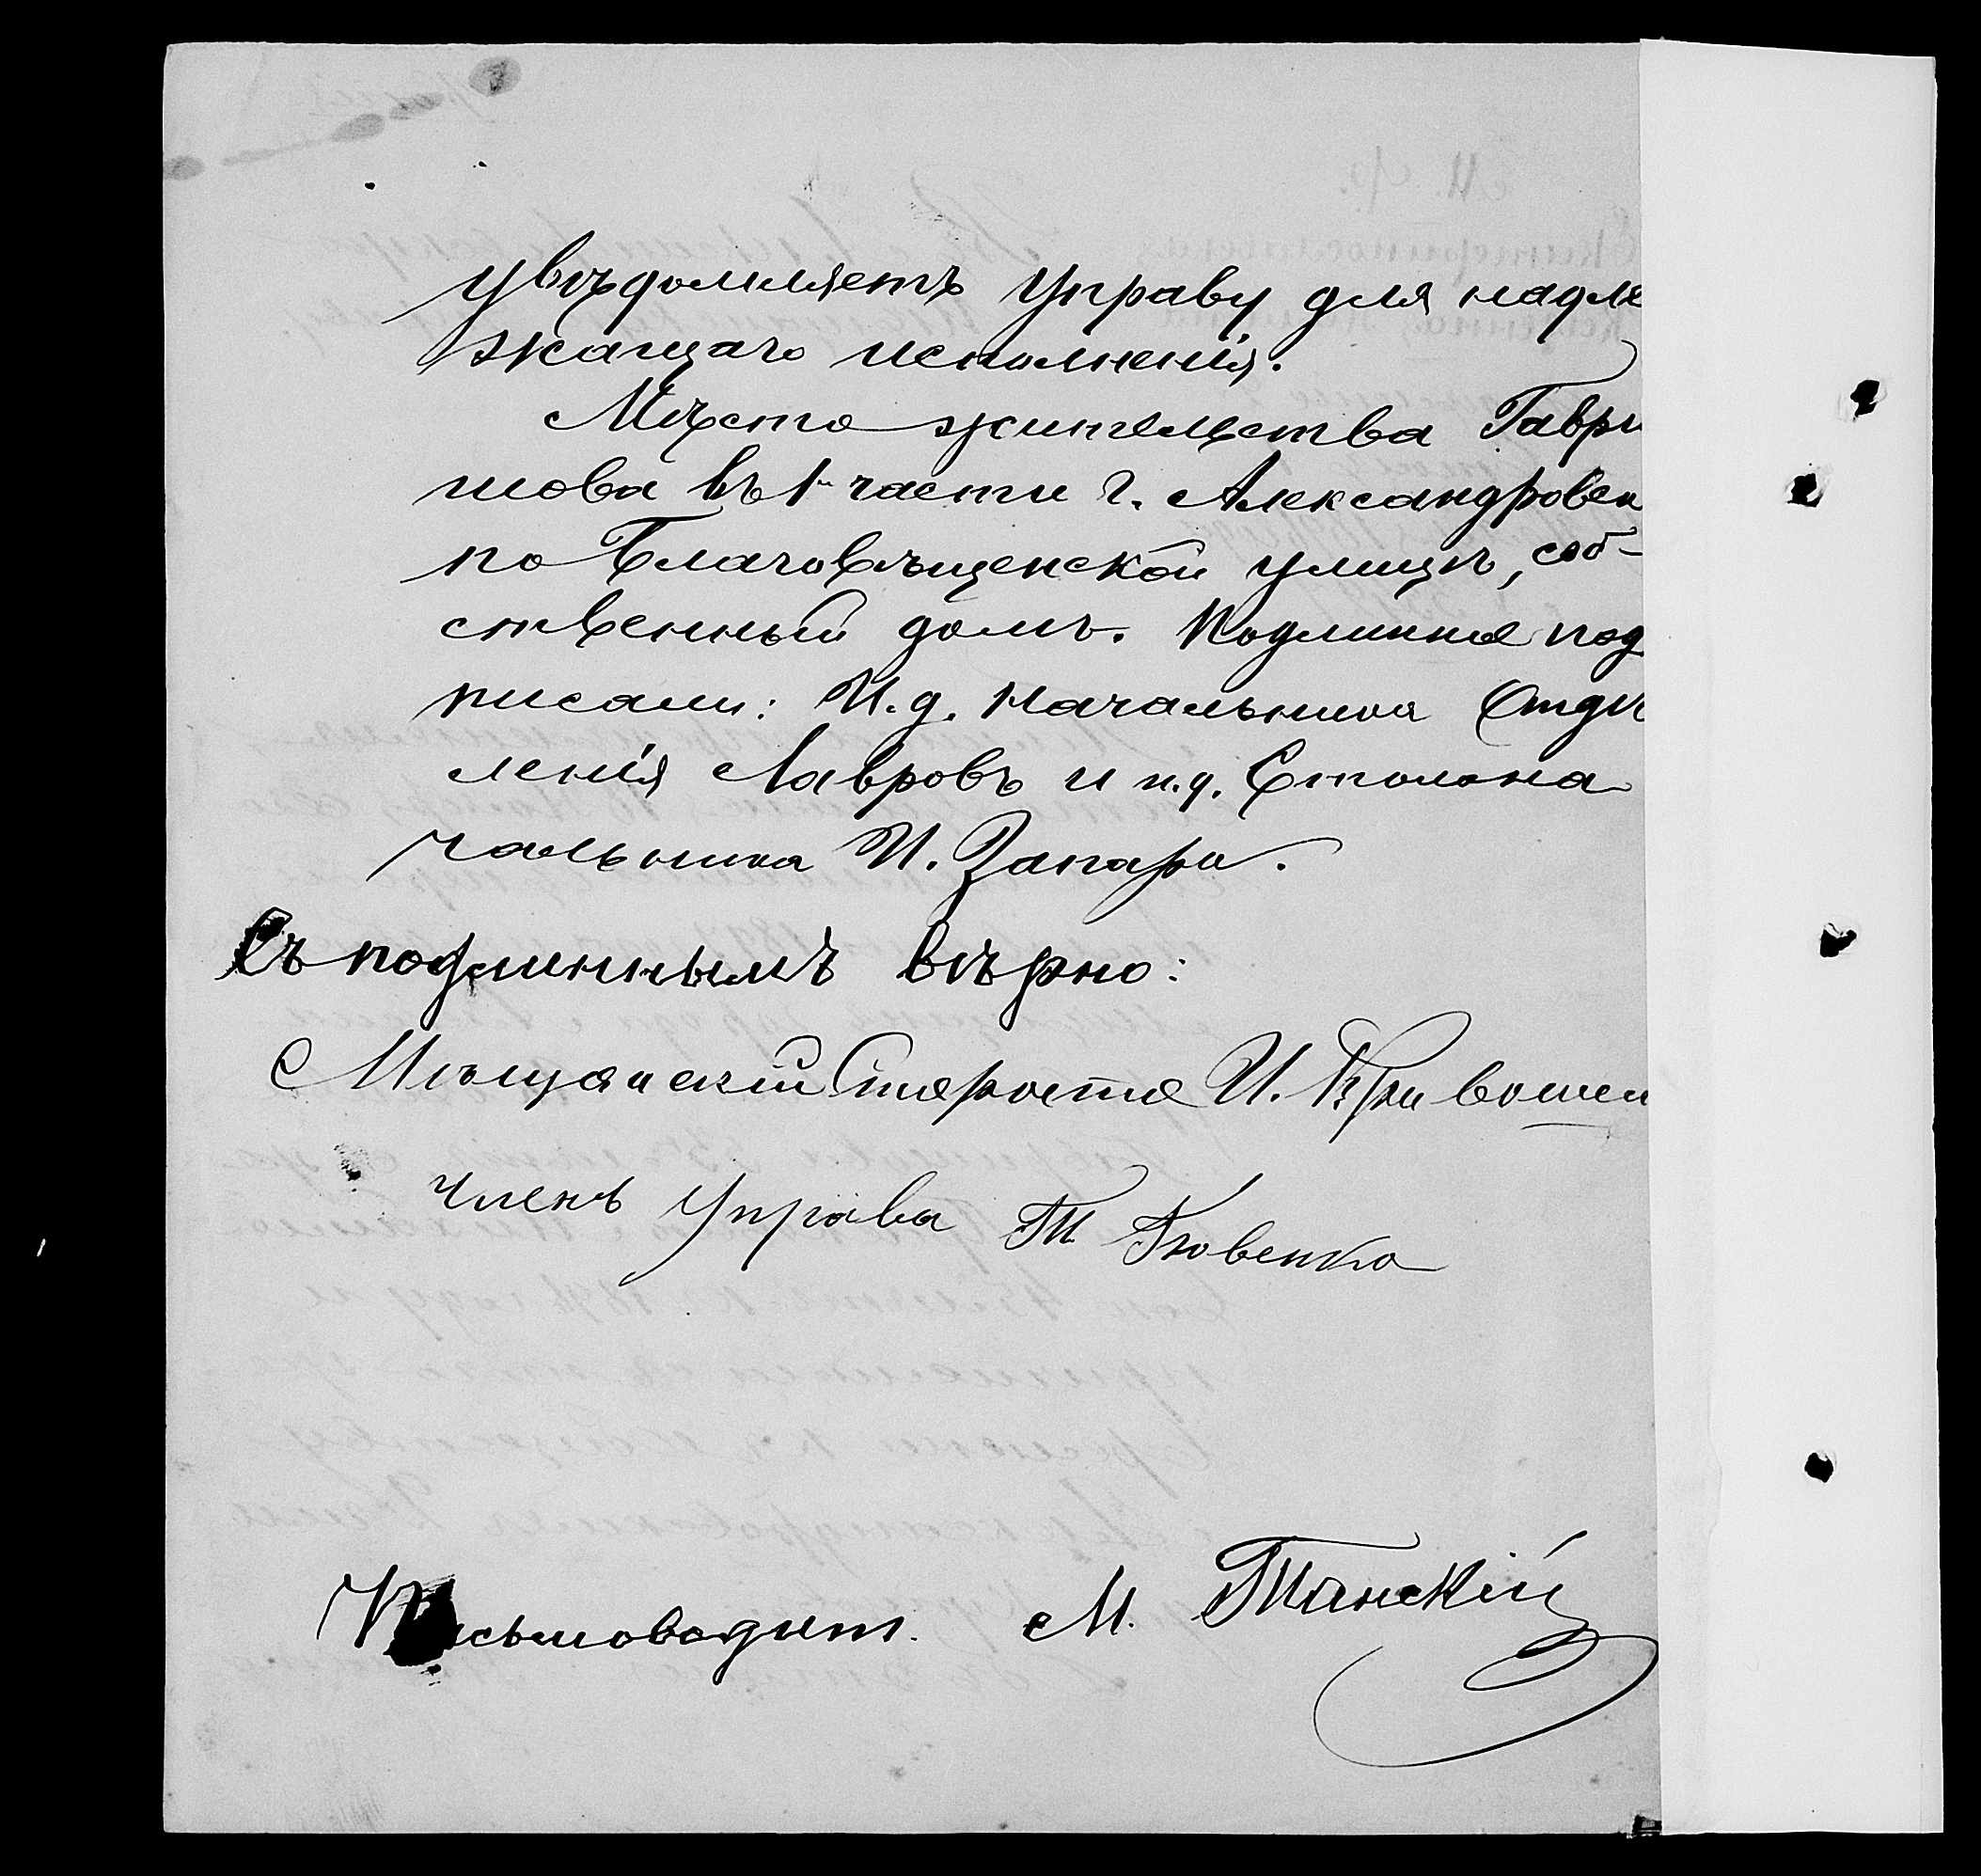 увѣдомляетъ Управу для надле
жащаго исполненія.
Мѣсто жительства Гаври
шова въ 1й части г. Александровск
по Благовѣщенской улицѣ, соб-
ственный домъ. Подлинное под
писали: И.д. Начальника Отдѣ
ленія Лавровъ и и.д. Столона
чальника И. Запара.
Съ подлиннымъ вѣрно:
Мѣщанскій Староста И. Кривошеи
Членъ Управы Яковенко
Письмоводит. М. Танскій